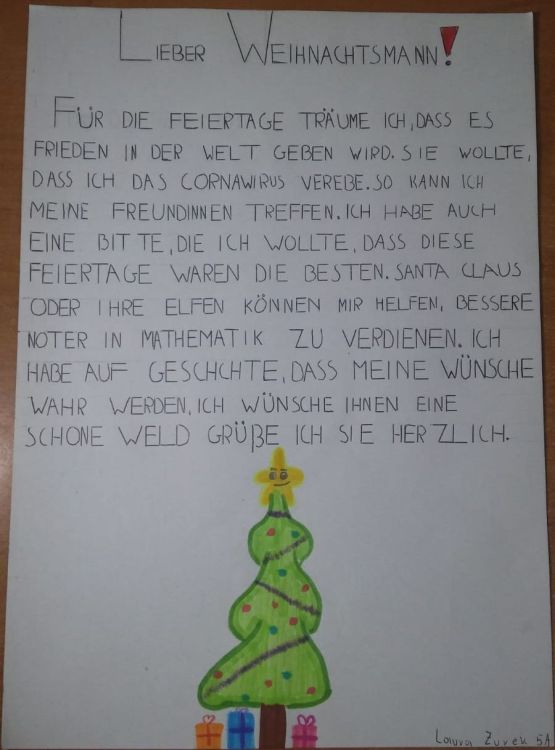 LIEBER WEIHNACHTSMANN!
FÜR DIE FEIERTAGE TRÄUME ICH, DASS ES
FRIEDEN IN DER WELT GEBEN WIRD. SIE WOLLTE,
DASS ICH DAS CORNAWIRUS VEREBE. SO KANN ICH
MEINE FREUNDINNEN TREFFEN. ICH HABE AUCH
EINE BITTE, DIE ICH WOLLTE, DASS DIESE
FEIERTAGE WAREN DIE BESTEN. SANTA CLAUS
ODER IHRE ELFEN KÖNNEN MIR HELFEN, BESSERE
NOTER IN MATHEMATIK ZU VERDIENEN. ICH
HABE AUF GESCHCHTE, DASS MEINE WÜNSCHE
WAHR WERDEN, ICH WÜNSCHE IHNEN EINE
SCHONE WELD GRÜßE ICH SIE HERZLICH.
Laura Zurek 5A